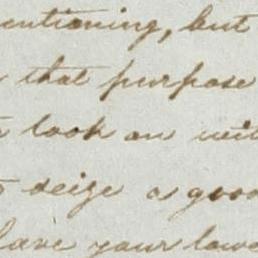 entioning, but
that purpose
look on wit
seize a good
have your lowe